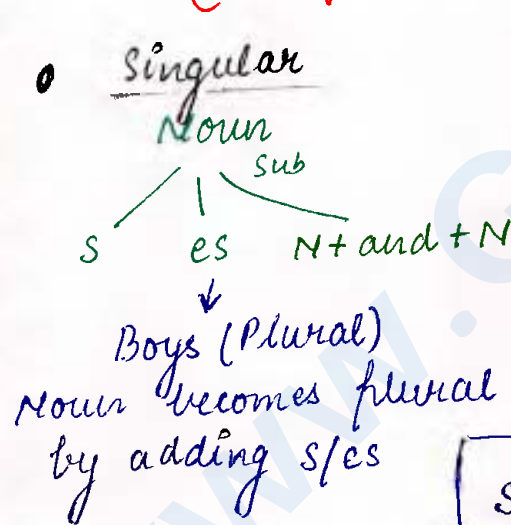 • Singular
Noun
Sub
S es N + and + N
Boys (Plural)
Noun becomes plural
by adding s/es
S
WWW.G